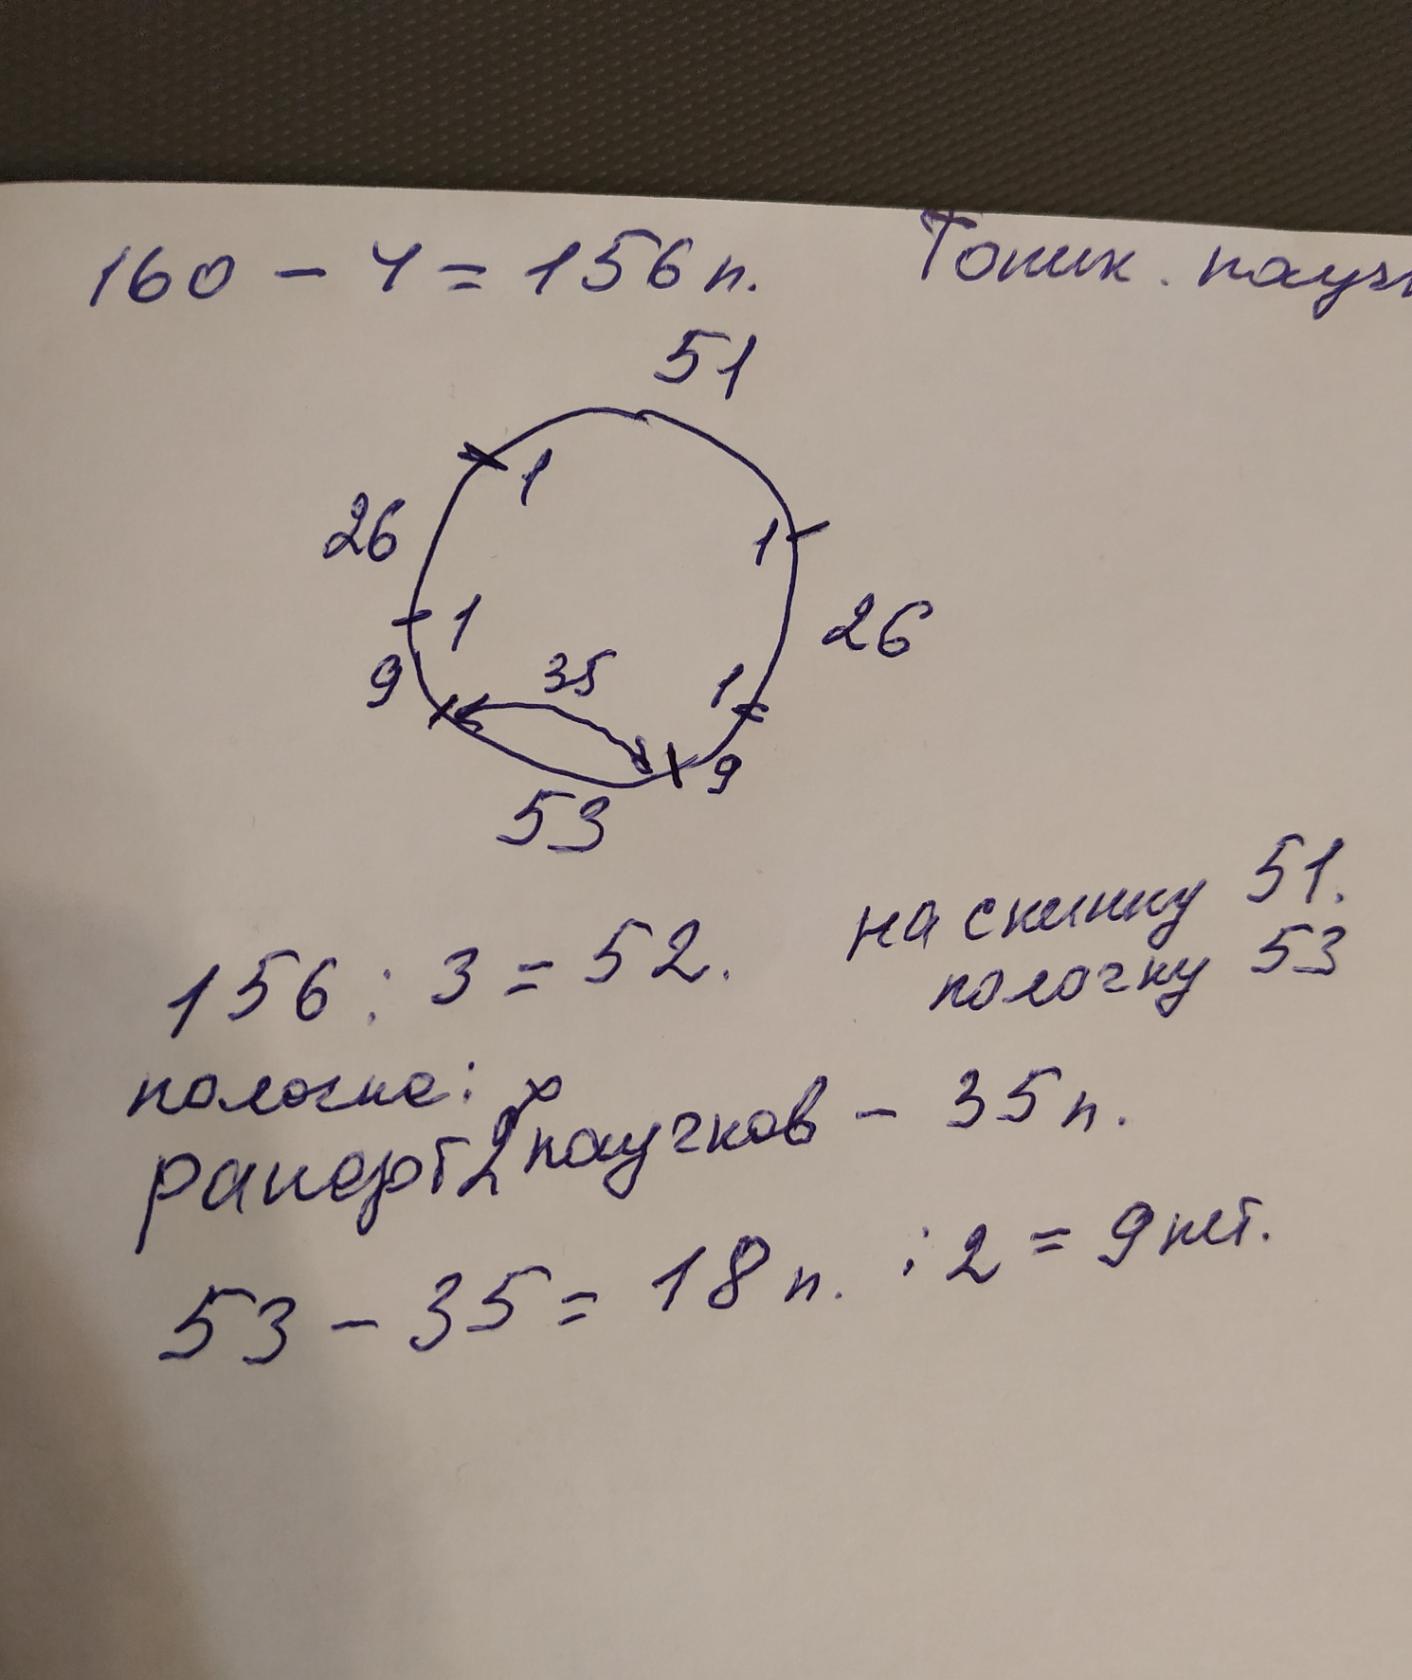 160 - 4 = 156 п. Топик. паучк
51
1
26
1
26
1
9
35
1
9
53
156 : 3 = 52. на спинку 51.
полочку 53
полочка:
рапорт 2 паучков - 35 п.
53 - 35 = 18 п. : 2 = 9 пет.